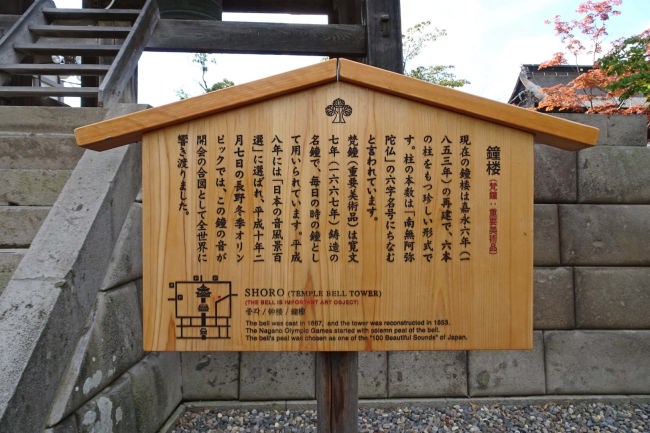 鐘楼
（梵鐘：重要美術品）
現在の鐘楼は嘉永六年（一
八五三年）の再建で、六本
の柱をもつ珍しい形式で
す。柱の本数は「南無阿弥
陀仏」の六字名号にちなむ
と言われています。
梵鐘（重要美術品）は寛文
七年（一六六七年）鋳造の
名鐘で、毎日の時の鐘とし
て用いられています。平成
八年には「日本の音風景百
選」に選ばれ、平成十年二
月七日の長野冬季オリン
ピックでは、この鐘の音が
開会の合図として全世界に
響き渡りました。
SHORO (TEMPLE BELL TOWER)
(THE BELL IS IMPORTANT ART OBJECT)
종각 / 钟楼 / 鐘樓
The bell was cast in 1667, and the tower was reconstructed in 1853.
The Nagano Olympic Games started with solemn peal of the bell.
The bell's peal was chosen as one of the "100 Beautiful Sounds" of Japan.